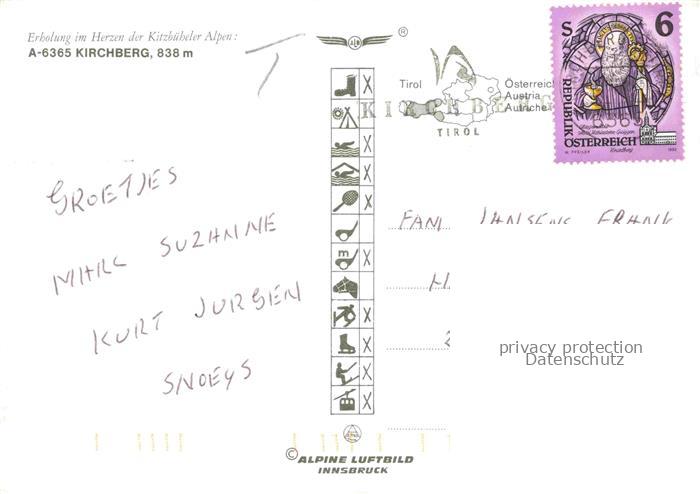 Erholung im Herzen der Kitzbüheler Alpen:
A-6365 KIRCHBERG, 838 m
T
GROETJES
MARC SUZANNE
KURT JURGEN
SNOEYS
®
Tirol
Österreich
Austria
Autriche
KIRCHBERG
TIROL
S 6
REPUBLIK
ÖSTERREICH
1993
FAM JANSENS FRANK
privacy protection
Datenschutz
© ALPINE LUFTBILD
INNSBRUCK